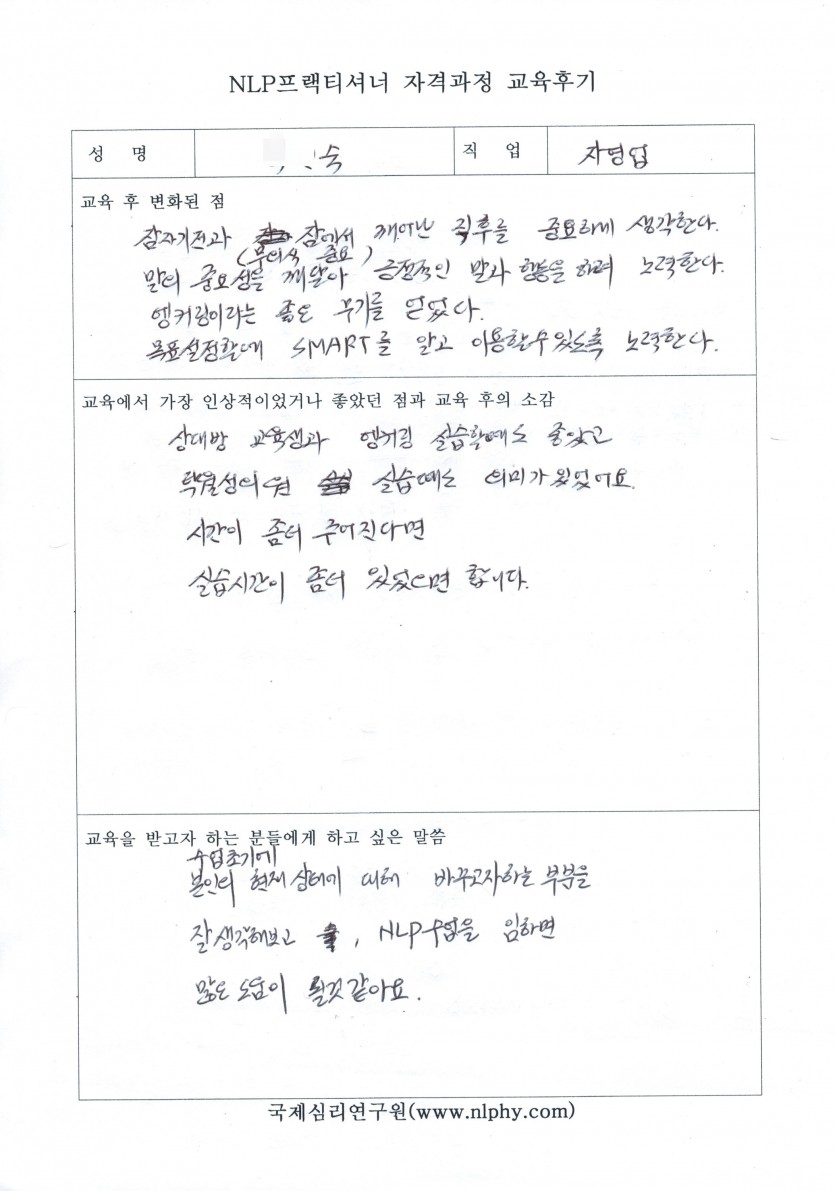 NLP프랙티셔너 자격과정 교육후기
성 명 숙 직 업 자영업
교육 후 변화된 점
잠자기전과 잠에서 깨어난 직후를 중요하게 생각한다.
(무의식 중요)
말의 중요성을 깨달아 긍정적인 말과 행동을 하려 노력한다.
앵커링이라는 좋은 무기를 얻었다.
목표설정할때 SMART를 알고 이용할수있도록 노력한다.
교육에서 가장 인상적이었거나 좋았던 점과 교육 후의 소감
상대방 교육생과 앵커링 실습할때도 좋았고
탁월성의 원 실습때도 의미가 있었어요.
시간이 좀더 주어진다면
실습시간이 좀더 있었으면 합니다.
교육을 받고자 하는 분들에게 하고 싶은 말씀
수업초기에
본인의 현재 상태에 대해 바꾸고자하는 부분을
잘 생각해보고 , NLP수업을 임하면
많은 도움이 될것 같아요.
국제심리연구원(www.nlphy.com)